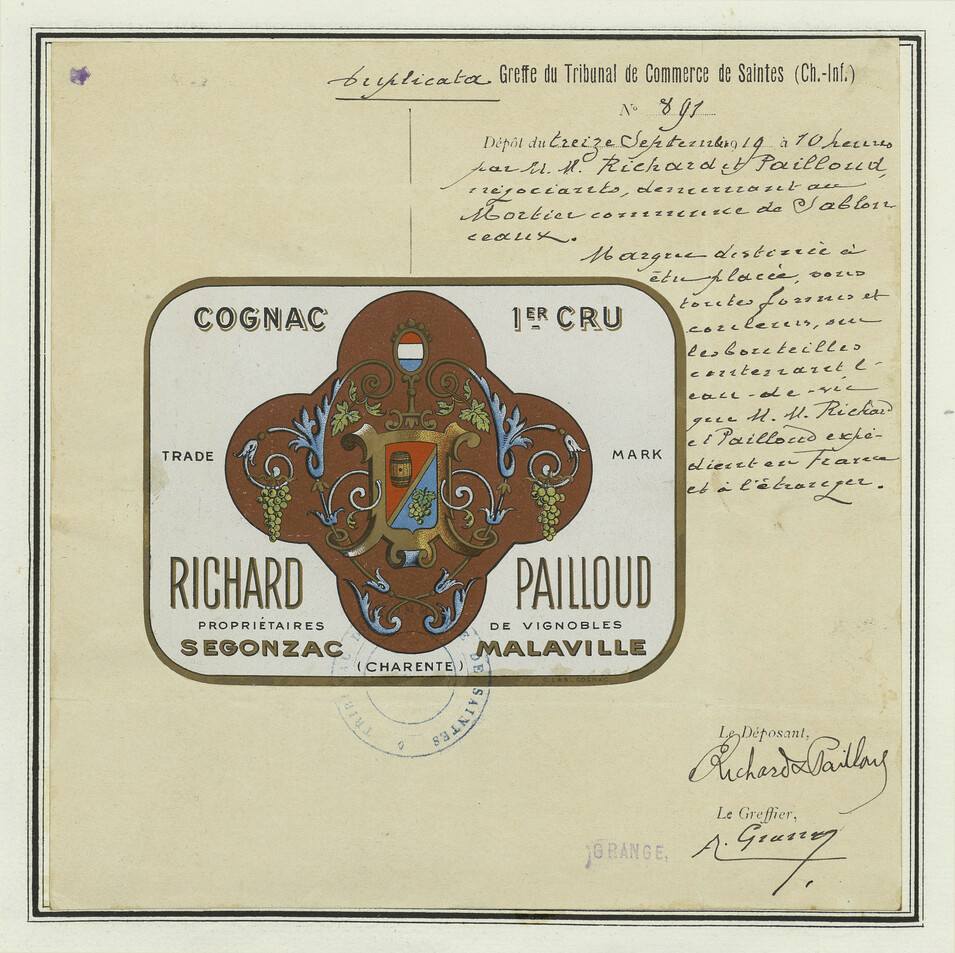 Duplicata Greffe du Tribunal de Commerce de Saintes (Ch.-Inf.)
N° 891
Dépôt du treize Septembre 1919 à 10 heures
par M. M. Richard et Pailloud,
négociants, demeurant au
Mortier commune de Sablon
ceaux.
Marque destinée à
être placée, sous
toutes formes et
couleurs, sur
les bouteilles
contenant l'
eau-de-vie
que M. M. Richard
et Pailloud expé-
dient en France
et à l'étranger.
COGNAC 1ER CRU
TRADE MARK
RICHARD PAILLOUD
PROPRIÉTAIRES DE VIGNOBLES
SEGONZAC MALAVILLE
(CHARENTE)
COGNAC
DE SAINTES
Le Déposant,
Richard & Pailloud
Le Greffier,
ORANGE,